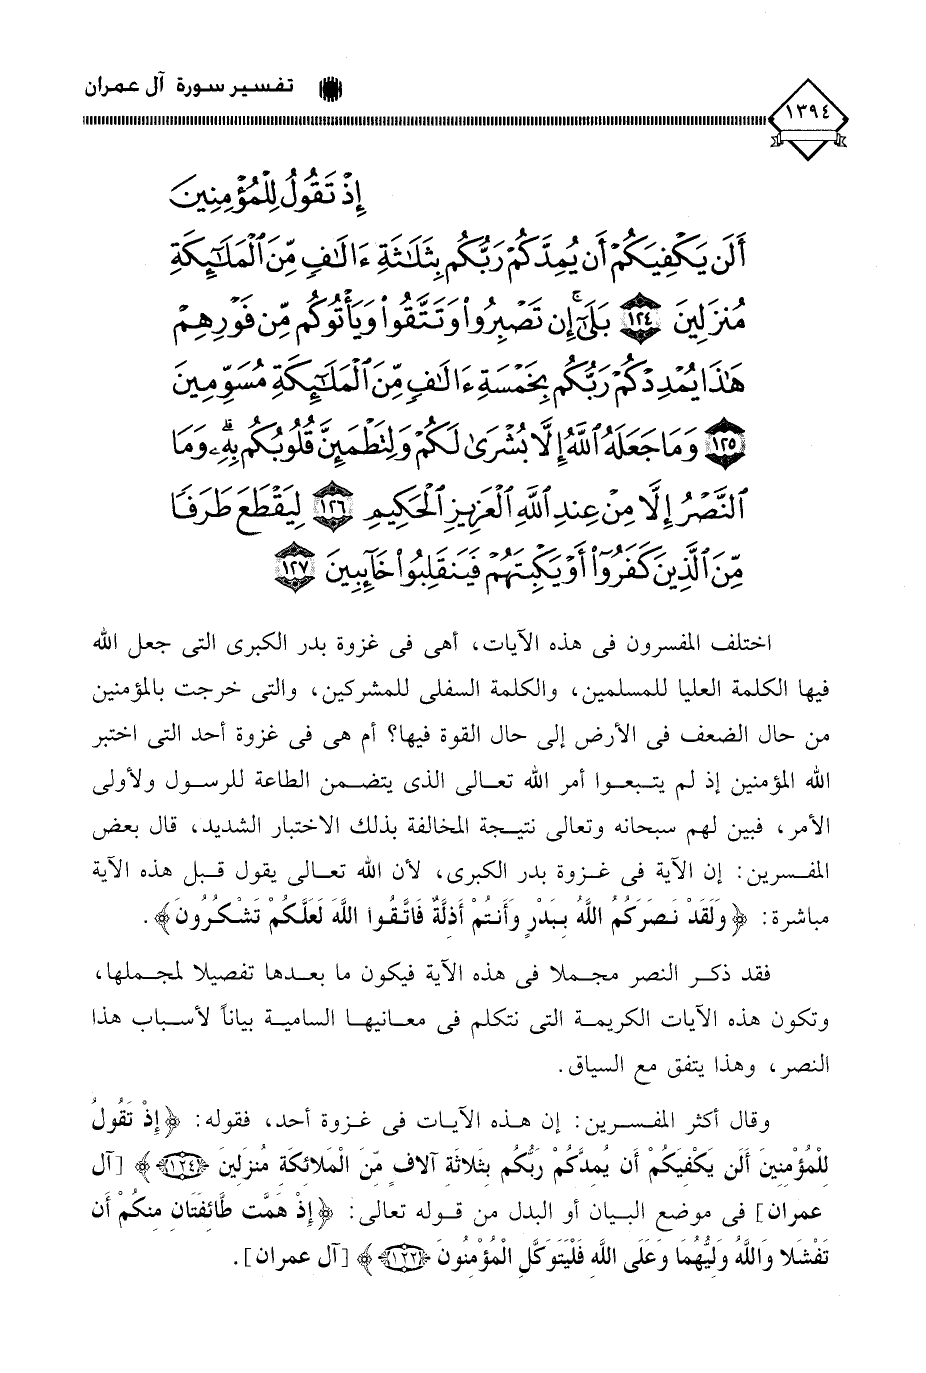 تفسير سورة آل عمران
١٣٩٤
إِذْ تَقُولُ لِلْمُؤْمِنِينَ
أَلَن يَكْفِيَكُمْ أَن يُمِدَّكُمْ رَبُّكُم بِثَلَٰثَةِ ءَالَٰفٍ مِّنَ ٱلْمَلَٰٓئِكَةِ
مُنزَلِينَ ١٢٤ بَلَىٰٓ ۚ إِن تَصْبِرُوا۟ وَتَتَّقُوا۟ وَيَأْتُوكُم مِّن فَوْرِهِمْ
هَٰذَا يُمْدِدْكُمْ رَبُّكُم بِخَمْسَةِ ءَالَٰفٍ مِّنَ ٱلْمَلَٰٓئِكَةِ مُسَوِّمِينَ
١٢٥ وَمَا جَعَلَهُ ٱللَّهُ إِلَّا بُشْرَىٰ لَكُمْ وَلِتَطْمَئِنَّ قُلُوبُكُم بِهِۦ ۗ وَمَا
ٱلنَّصْرُ إِلَّا مِنْ عِندِ ٱللَّهِ ٱلْعَزِيزِ ٱلْحَكِيمِ ١٢٦ لِيَقْطَعَ طَرَفًا
مِّنَ ٱلَّذِينَ كَفَرُوٓا۟ أَوْ يَكْبِتَهُمْ فَيَنقَلِبُوا۟ خَآئِبِينَ ١٢٧
اختلف المفسرون فى هذه الآيات، أهى فى غزوة بدر الكبرى التى جعل الله
فيها الكلمة العليا للمسلمين، والكلمة السفلى للمشركين، والتى خرجت بالمؤمنين
من حال الضعف فى الأرض إلى حال القوة فيها؟ أم هى فى غزوة أحد التى اختبر
الله المؤمنين إذ لم يتبعوا أمر الله تعالى الذى يتضمن الطاعة للرسول ولأولى
الأمر، فبين لهم سبحانه وتعالى نتيجة المخالفة بذلك الاختبار الشديد، قال بعض
المفسرين: إن الآية فى غزوة بدر الكبرى، لأن الله تعالى يقول قبل هذه الآية
مباشرة: ﴿وَلَقَدْ نَصَرَكُمُ اللَّهُ بِبَدْرٍ وَأَنتُمْ أَذِلَّةٌ فَاتَّقُوا اللَّهَ لَعَلَّكُمْ تَشْكُرُونَ﴾.
فقد ذكر النصر مجملا فى هذه الآية فيكون ما بعدها تفصيلا لمجملها،
وتكون هذه الآيات الكريمة التى نتكلم فى معانيها السامية بياناً لأسباب هذا
النصر، وهذا يتفق مع السياق.
وقال أكثر المفسرين: إن هذه الآيات فى غزوة أحد، فقوله: ﴿إِذْ تَقُولُ
لِلْمُؤْمِنِينَ أَلَن يَكْفِيَكُمْ أَن يُمِدَّكُمْ رَبُّكُم بِثَلاثَةِ آلافٍ مِّنَ الْمَلائِكَةِ مُنزَلِينَ ﴿١٢٤﴾﴾ [آل
عمران] فى موضع البيان أو البدل من قوله تعالى: ﴿إِذْ هَمَّت طَّائِفَتَانِ مِنكُمْ أَن
تَفْشَلا وَاللَّهُ وَلِيُّهُمَا وَعَلَى اللَّهِ فَلْيَتَوَكَّلِ الْمُؤْمِنُونَ ﴿١٢٢﴾﴾ [آل عمران].